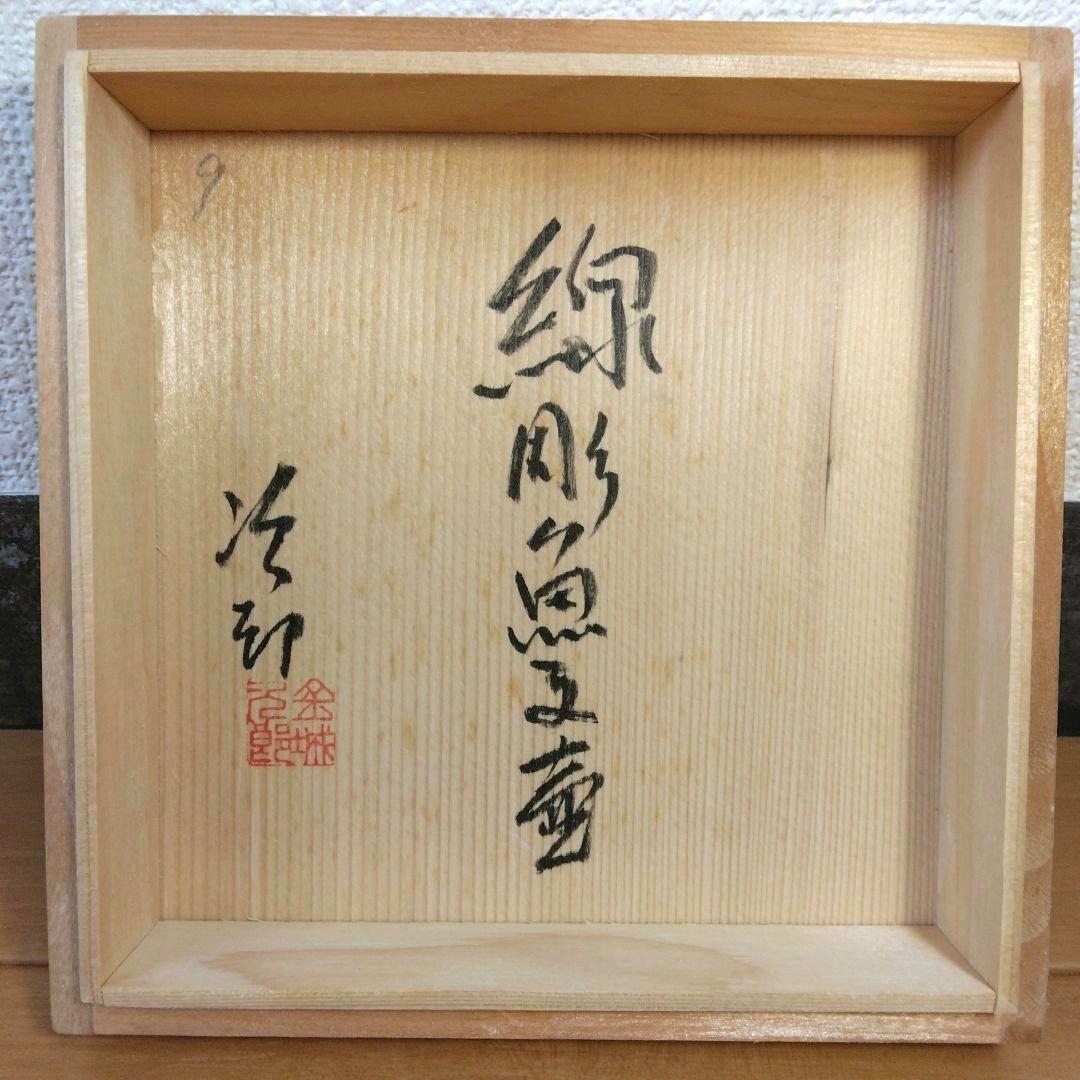 線彫魚文壷
次郎
金城
次郎
9